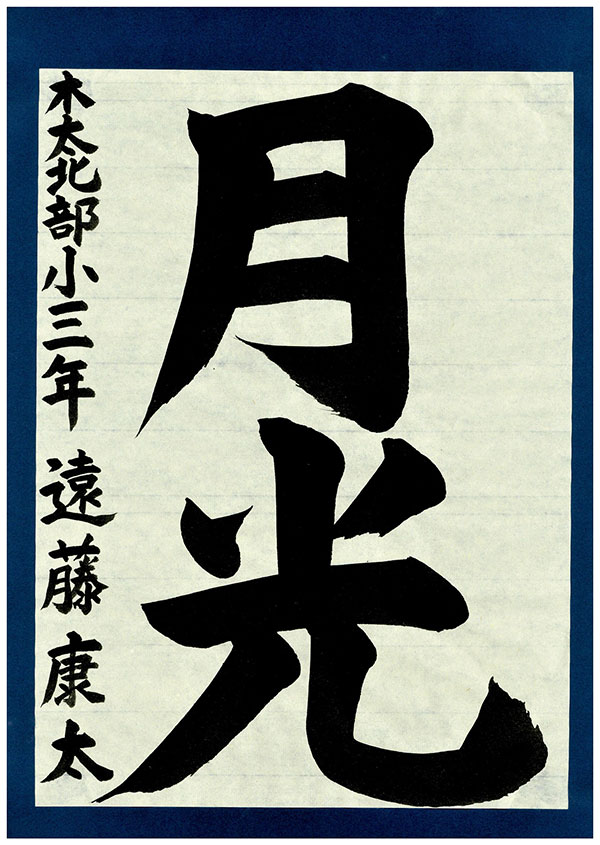 月光
木太北部小三年 遠藤康太